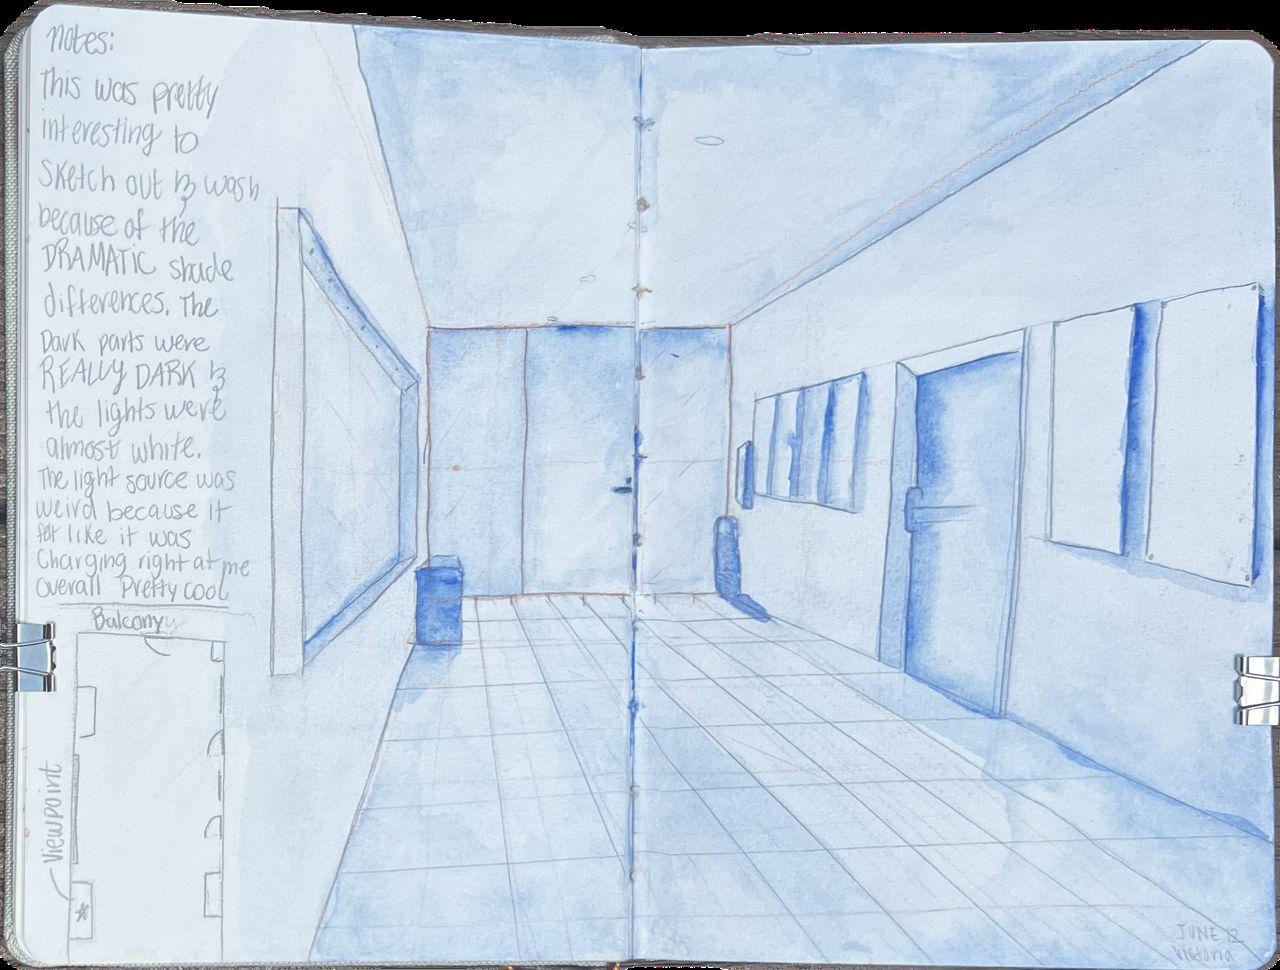 notes:
This was pretty
interesting to
sketch out & wash
because of the
DRAMATIC shade
differences. The
Dark parts were
REALLY DARK &
the lights were
almost white.
The light source was
weird because it
felt like it was
Charging right at me
Overall Pretty cool
Balcony
Viewpoint
JUNE 12
Victoria